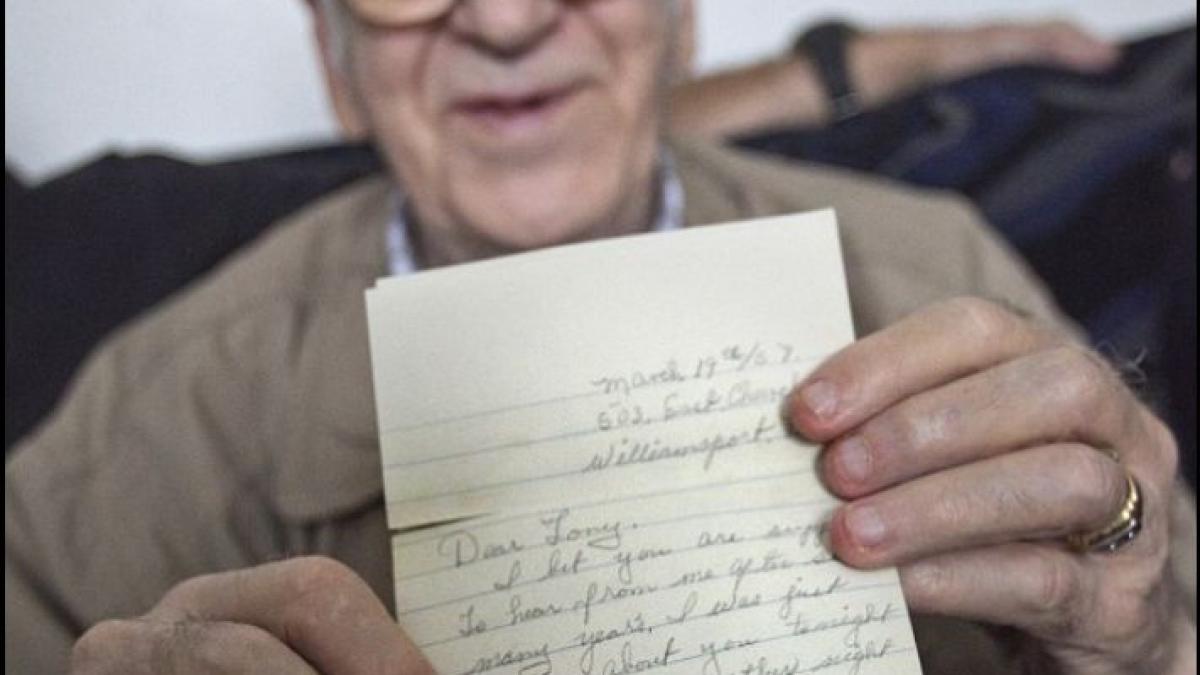 March 19th/57.
503. East
Williamsport
Dear Tony.
I bet you are
To hear from me after
many years, I was just
about you tonight
this night